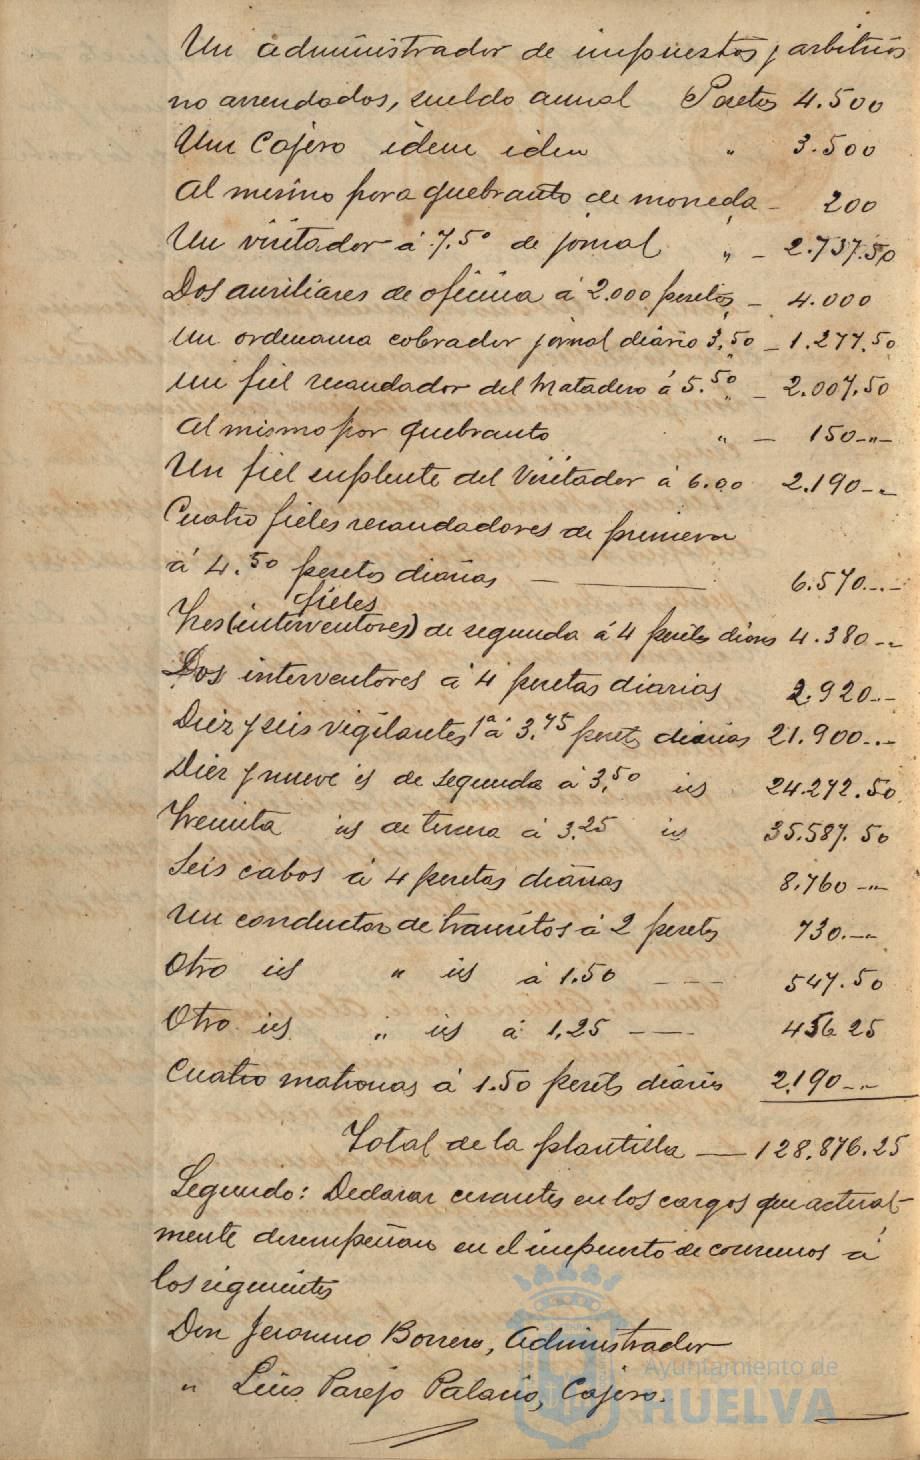 Un administrador de impuestos y arbitrios
no arrendados, sueldo anual Pesetas 4.500
Un Cajero idem idem " 3.500
Al mismo para quebranto de moneda - 200
Un visitador á 7.50 de jornal " - 2.737.50
Dos auxiliares de oficina á 2.000 pesetas - 4.000
Un ordenanza cobrador jornal diário 3,50 - 1.277.50
Un fiel recaudador del Matadero á 5.50 " - 2.007.50
Al mismo por quebranto " - 150-"-
Un fiel suplente del Visitador á 6.00 2.190-"
Cuatro fieles recaudadores de primera
á 4.50 pesetas diarias — 6.570.-.-
fieles
Tres (interventores) de segunda á 4 pesetas diarias 4.380-"
Dos interventores á 4 pesetas diarias 2.920.-
Diez y seis vigilantes 1ª á 3.75 pesets diarias 21.900-.-
Diez y nueve id de segunda á 3,50 id 24.272.50
Treinta id de tercera á 3.25 id 35.587.50
Seis cabos á 4 pesetas diarias 8.760-"-
Un conductor de transitos á 2 pesetas 730.-"
Otro id " id á 1.50 --- 547.50
Otro id " id á 1,25 — 456 25
Cuatro matronas á 1.50 pesets diarias 2.190-"
Total de la plantilla — 128.876.25
Segundo: Declarar cesantes en los cargos que actual-
mente desempeñan en el impuesto de consumos á
los siguientes
Don Jeronimo Borrero, Administrador
" Luis Parejo Palacio, Cajero.
Ayuntamiento de
HUELVA